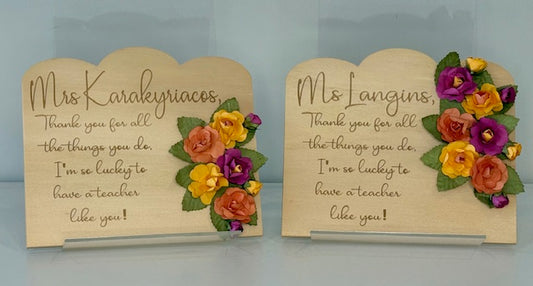 Mrs Karakyriacos,
Thank you for all
the things you do,
I'm so lucky to
have a teacher
like you!
Ms Langins,
Thank you for all
the things you do,
I'm so lucky to
have a teacher
like you!